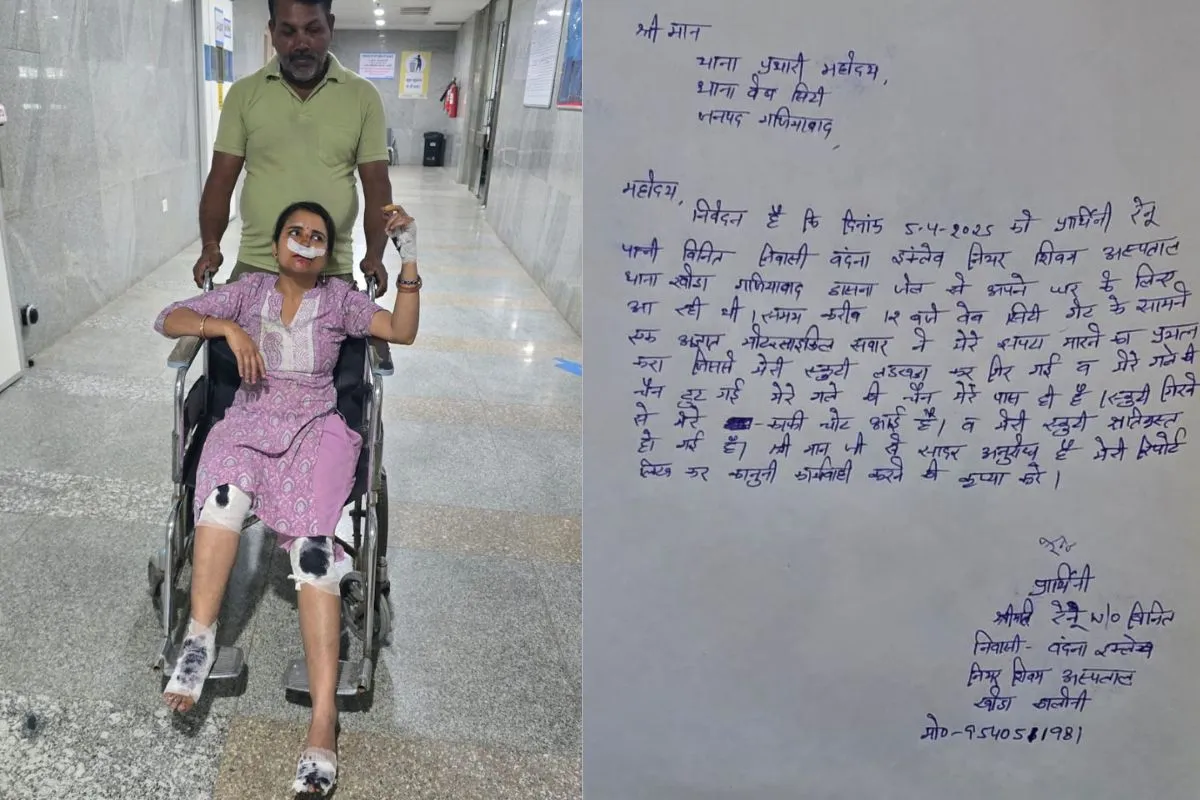 श्री मान
थाना प्रभारी महोदय,
थाना वेव सिटी
जनपद गाजियाबाद,
महोदय,
निवेदन है कि दिनांक 5-4-2025 को प्रार्थिनी रेनू
पत्नी विनित निवासी वंदना इंक्लेव नियर शिवम अस्पताल
थाना खोडा गाजियाबाद डासना जेल से अपने घर के लिए
आ रही थी। समय करीब 12 बजे वेव सिटी गेट के सामने
एक अज्ञात मोटरसाइकिल सवार ने मेरे झपटा मारने का प्रयास
करा जिससे मेरी स्कुटी लडखडा कर गिर गई व मेरे गले की
चैन टुट गई मेरे गले की चैन मेरे पास ही है। स्कुटी गिरने
से मेरे काफी चोट आई है। व मेरी स्कुटी क्षतिग्रस्त
हो गई है। श्री मान जी से सादर अनुरोध है मेरी रिपोर्ट
लिख कर कानुनी कार्यवाही करने की कृप्या करे।
रेनू
प्रार्थिनी
श्रीमती रेनू W/O विनित
निवासी- वंदना इन्लेव
नियर शिवम अस्पताल
खोडा कालोनी
मो०-9540511981